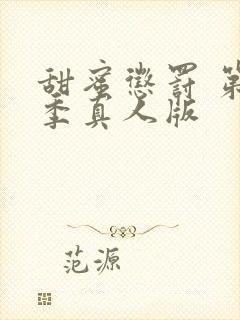 甜蜜懲罰 第
季真人版
范源